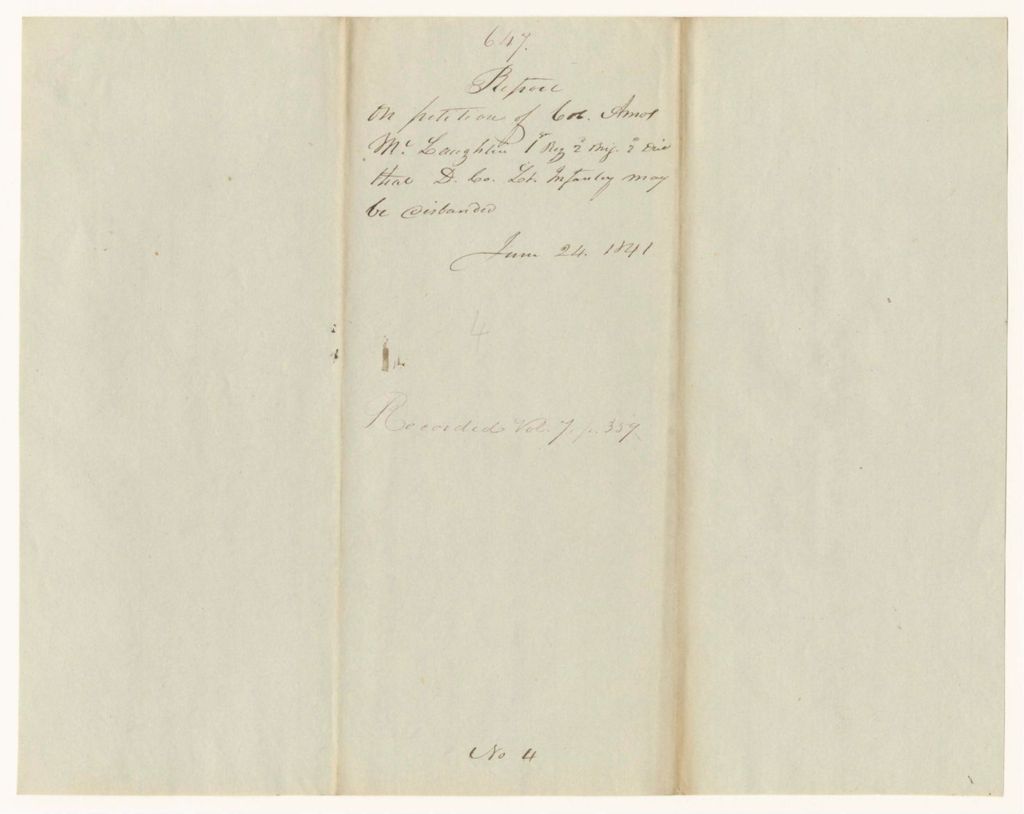 647.
Report
On petition of Col. Amos
Mc Laughlin 1st Reg 2d Brig. 2d Div
that D. Co. Lt. Infantry may
be disbanded
June 24. 1841
4
Recorded Vol. 7. p. 339
No 4